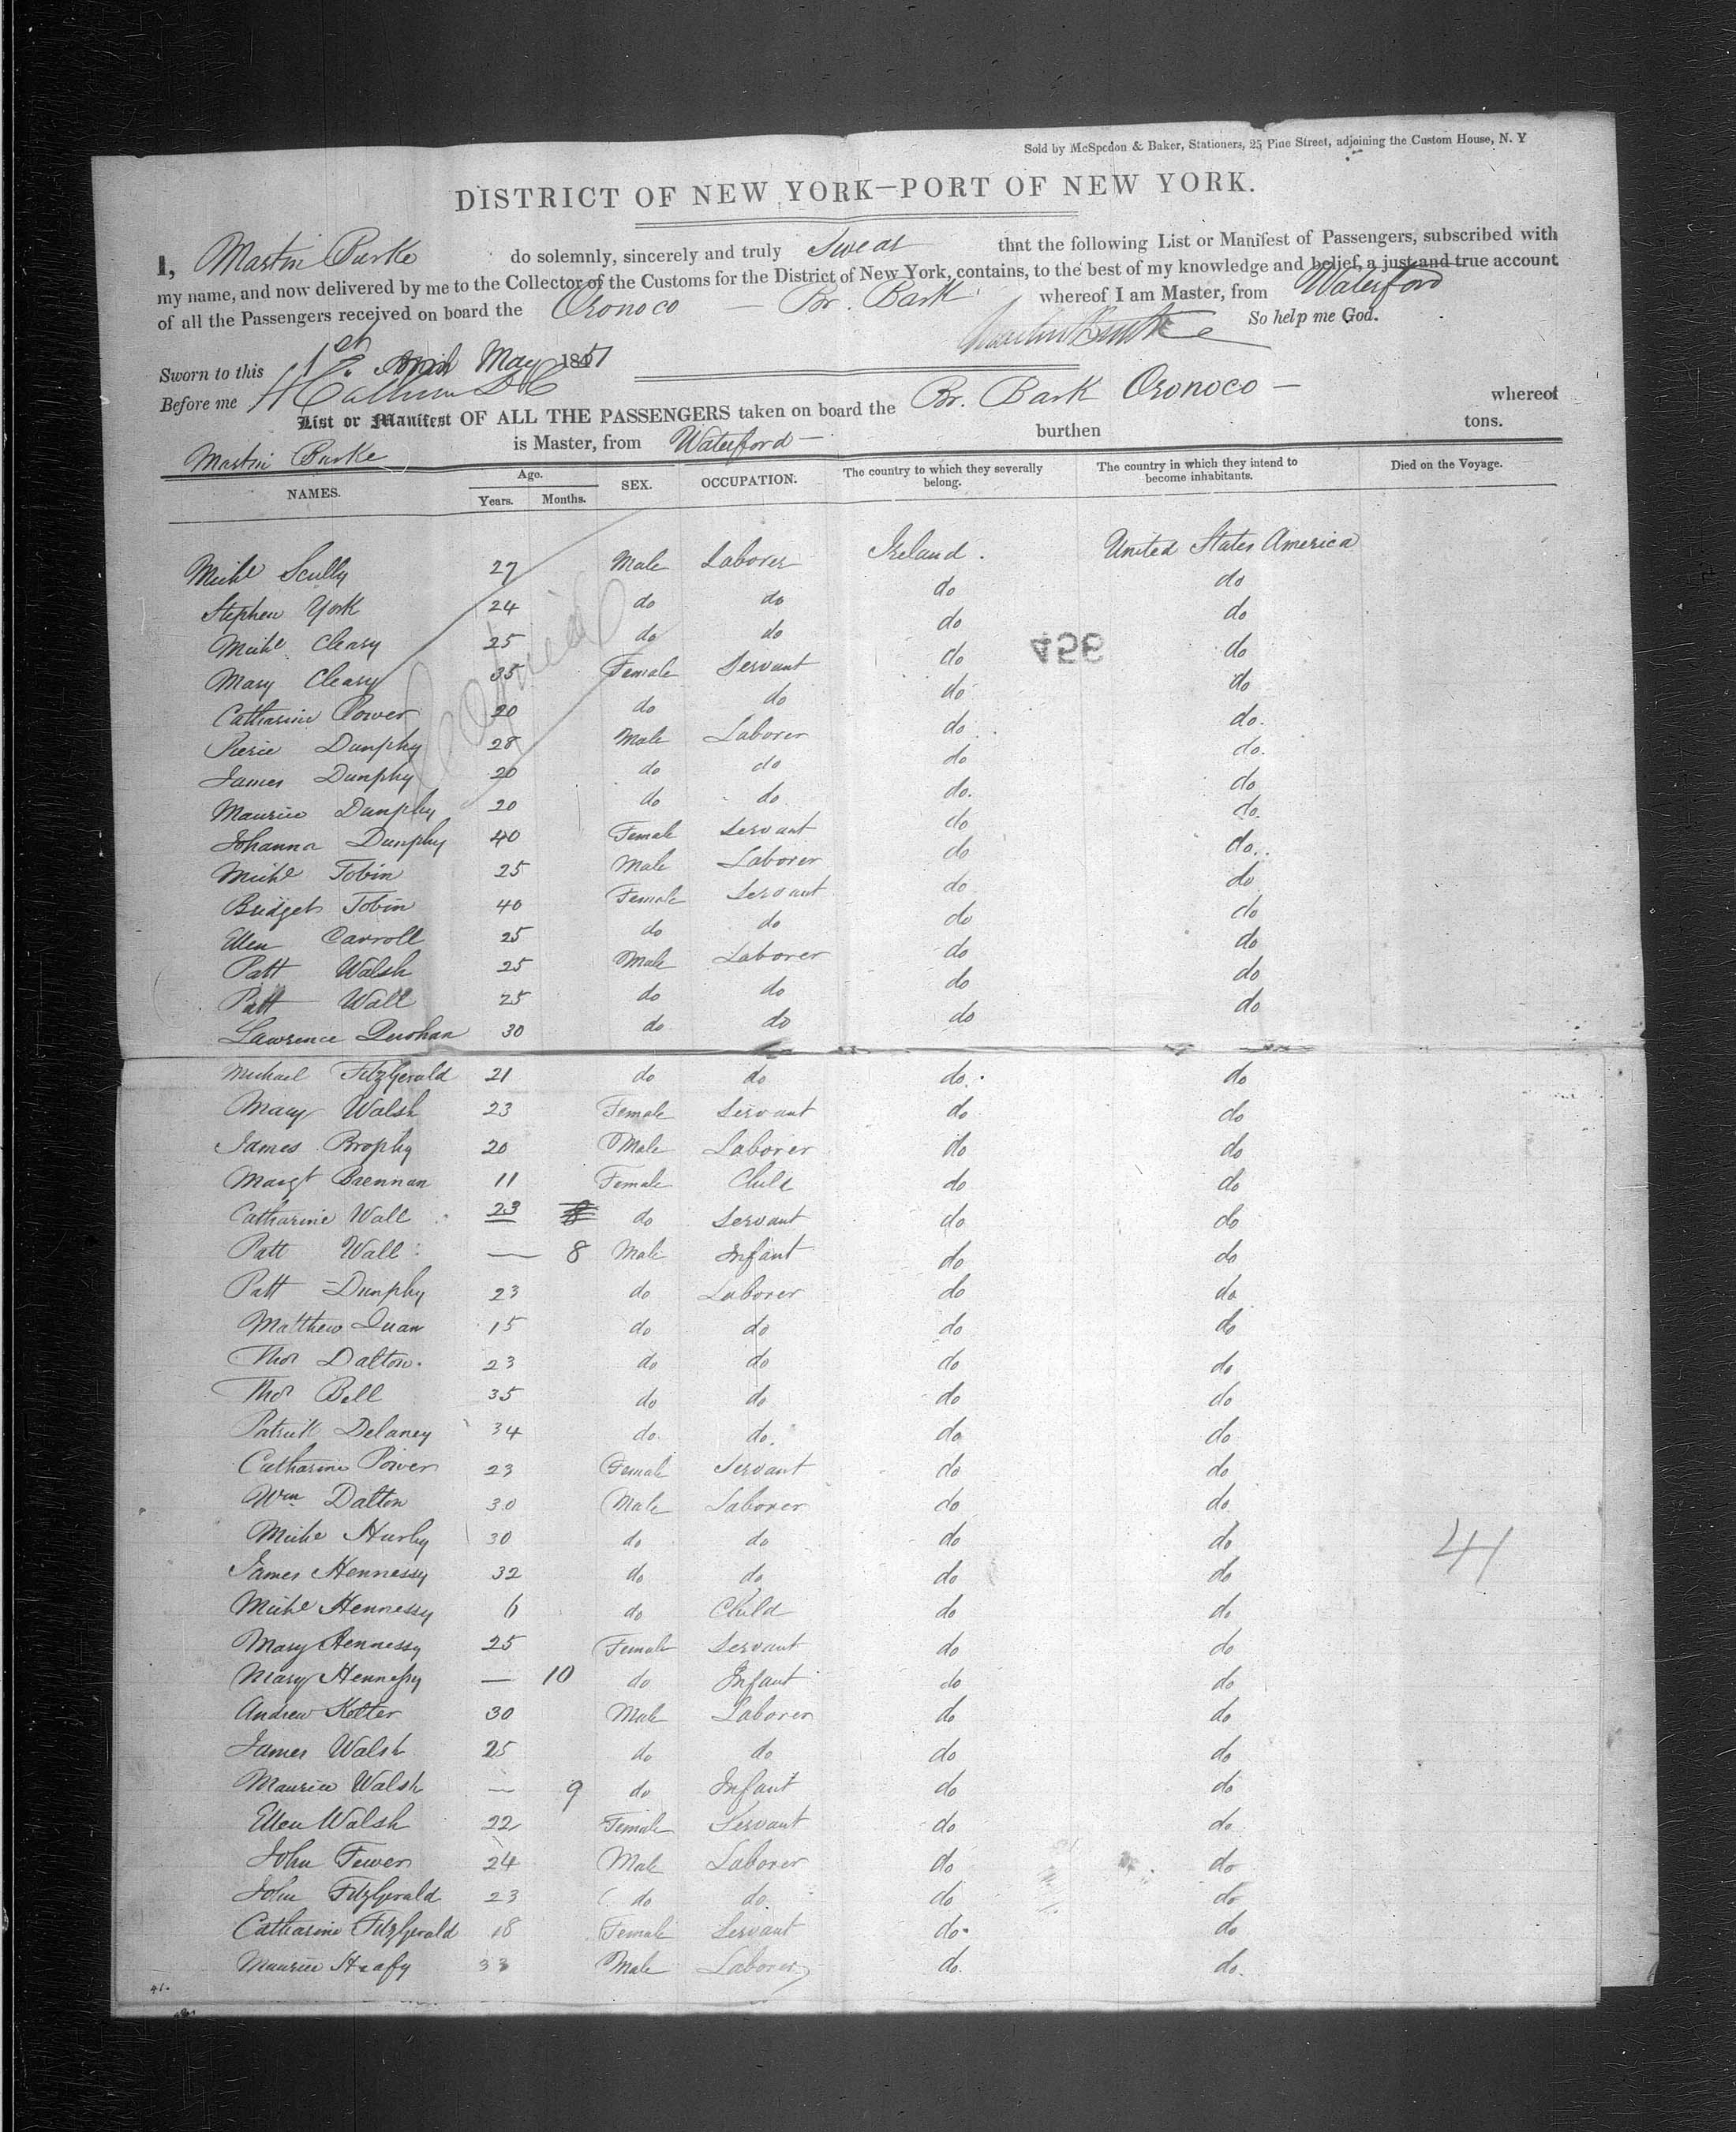 Sold by McSpedon & Baker, Stationers, 25 Pine Street, adjoining the Custom House, N. Y
DISTRICT OF NEW YORK—PORT OF NEW YORK.
I, Martin Burke do solemnly, sincerely and truly Swear that the following List or Manifest of Passengers, subscribed with
my name, and now delivered by me to the Collector of the Customs for the District of New York, contains, to the best of my knowledge and belief, a just and true account
of all the Passengers received on board the Oronoco — Br. Bark whereof I am Master, from Waterford
Martin Burke So help me God.
Sworn to this 1st April May 1851
Before me
List or Manifest OF ALL THE PASSENGERS taken on board the Br. Bark Oronoco — whereof
Martin Burke is Master, from Waterford — burthen tons.
NAMES. Age. Years. Months. SEX. OCCUPATION. The country to which they severally belong. The country in which they intend to become inhabitants. Died on the Voyage.
Michl Scully 27 Male Laborer Ireland. United States America
Stephen York 24 do do do do
Michl Cleary 25 do do do do
Mary Cleary 35 Female Servant do do
456
Catharine Power 20 do do do do
Pierie Dunphy 28 Male Laborer do do.
James Dunphy 20 do do do do.
Maurice Dunphy 20 do do do. do
Johanna Dunphy 40 Female Servant do do.
Michl Tobin 25 Male Laborer do do.
Bridget Tobin 40 Female Servant do do
Ellen Carroll 25 do do do do
Patt Walsh 25 Male Laborer do do
Patt Wall 25 do do do do
Lawrence 30 do do do do
Michael FitzGerald 21 do do do. do
Mary Walsh 23 Female Servant do do
James Brophy 20 Male Laborer do do
Margt Brennan 11 Female Child do do
Catharine Wall 23 8 do Servant do do
Patt Wall — 8 Male Infant do do
Patt Dunphy 23 do Laborer do do
Matthew Quan 15 do do do do
Thos Dalton. 23 do do do do
Thos Bell 35 do do do do
Patrick Delaney 34 do. do. do do
Catharine Power 23 Female Servant do do
Wm Dalton 30 Male Laborer do do
Michl Hurly 30 do do do do
41
James Hennessy 32 do do do do
Michl Hennessy 6 do Child do do
Mary Hennessy 25 Female Servant do do
Mary Hennessy — 10 do Infant do do
Andrew Kotter 30 Male Laborer do do
James Walsh 25 do do do do
Maurice Walsh — 9 do Infant do do
Ellen Walsh 22 Female Servant do do
John Fewer 24 Male Laborer do do
John FitzGerald 23 do do do do
Catharine FitzGerald 18 Female Servant do do
Maurice Heafy 33 Male Laborer do. do.
41.